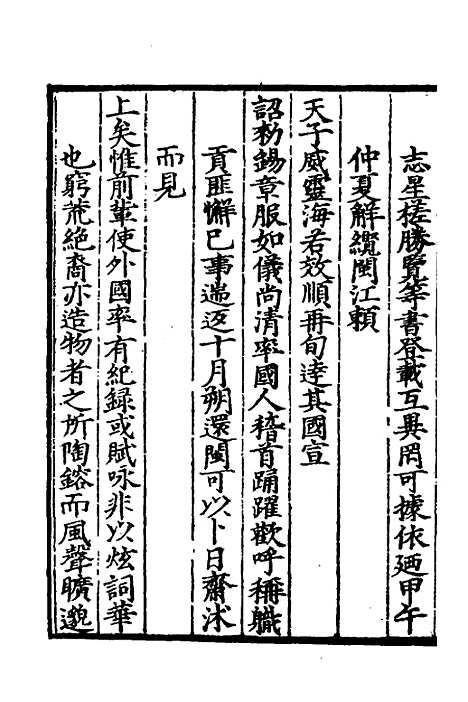 志星槎勝覽等書登載互異罔可據依廼甲午
仲夏解纜閩江賴
天子威靈海若效順再旬達其國宣
詔勑錫章服如儀尚清率國人稽首踊躍歡呼稱職
貢匪懈已事遄返十月朔還閩可以卜日齋沐
而見
上矣惟前輩使外國率有紀録或賦咏非以炫詞華
也窮荒絶裔亦造物者之所陶鎔而風聲曠邈